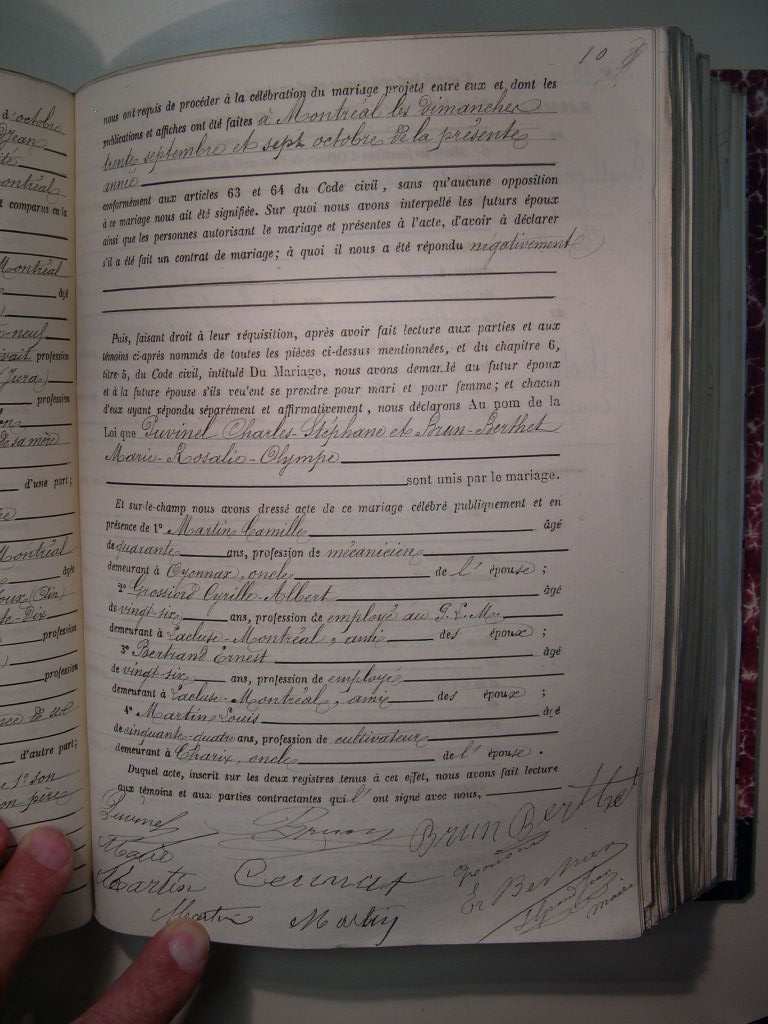 10
octobre
Jean
Montréal
t comparus en la
Montréal
âgé
neuf
profession
(Jura)
profession
de sa mère
d'une part;
Montréal
âgé
profession
profession
d'autre part;
son
son père
nous ont requis de procéder à la célébration du mariage projeté entre eux et dont les
publications et affiches ont été faites à Montréal les dimanches
trente septembre et sept octobre de la présente
année
conformément aux articles 63 et 64 du Code civil, sans qu'aucune opposition
à ce mariage nous ait été signifiée. Sur quoi nous avons interpellé les futurs époux
ainsi que les personnes autorisant le mariage et présentes à l'acte, d'avoir à déclarer
s'il a été fait un contrat de mariage; à quoi il nous a été répondu négativement
Puis, faisant droit à leur réquisition, après avoir fait lecture aux parties et aux
témoins ci-après nommés de toutes les pièces ci-dessus mentionnées, et du chapitre 6,
titre 5, du Code civil, intitulé Du Mariage, nous avons demandé au futur époux
et à la future épouse s'ils veulent se prendre pour mari et pour femme; et chacun
d'eux ayant répondu séparément et affirmativement, nous déclarons Au nom de la
Loi que Puvinel Charles-Stéphane et Brun-Berthet
Marie-Rosalie-Olympe
sont unis par le mariage.
Et sur-le-champ nous avons dressé acte de ce mariage célébré publiquement et en
présence de 1° Martin Camille âgé
de quarante ans, profession de mécanicien
demeurant à Oyonnax, oncle de l'épouse;
2° Grossiord Cyrille-Albert âgé
de vingt-six ans, profession de employé au P.L.M.
demeurant à Lacluse-Montréal, ami des époux;
3° Bertrand Ernest âgé
de vingt-six ans, profession de employé
demeurant à Lacluse-Montréal, ami des époux;
4° Martin Louis âgé
de cinquante-quatre ans, profession de cultivateur
demeurant à Charix, oncle de l'épouse.
Duquel acte, inscrit sur les deux registres tenus à cet effet, nous avons fait lecture
aux témoins et aux parties contractantes qui l'ont signé avec nous,
Puvinel Brun Brun Berthet
Martin
Martin Martin
maire